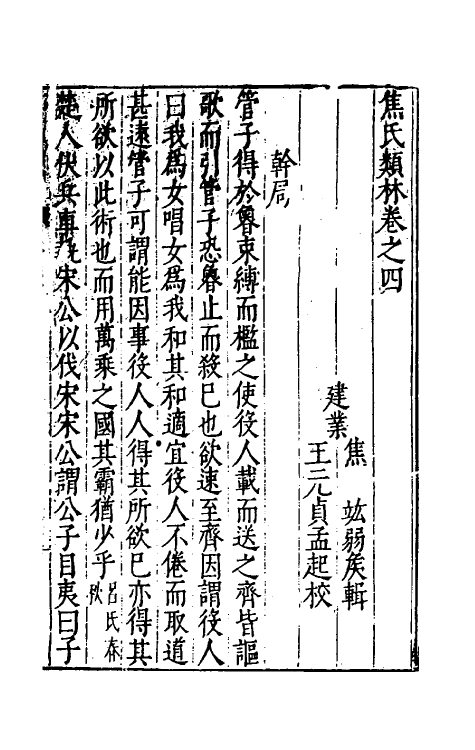 焦氏類林卷之四
建業焦　竑弱矦輯
王元貞孟起校
幹局
管子得於魯束縛而檻之使役人載而送之齊皆謳
歌而引管子恐魯止而殺巳也欲速至齊因謂役人
曰我為女唱女為我和其和適宜役人不倦而取道
甚速管子可謂能因事役人人得其所欲巳亦得其
所欲以此術也而用萬乘之國其霸猶少乎呂氏春秋
楚人伏兵車執宋公以伐宋宋公謂公子目夷曰子